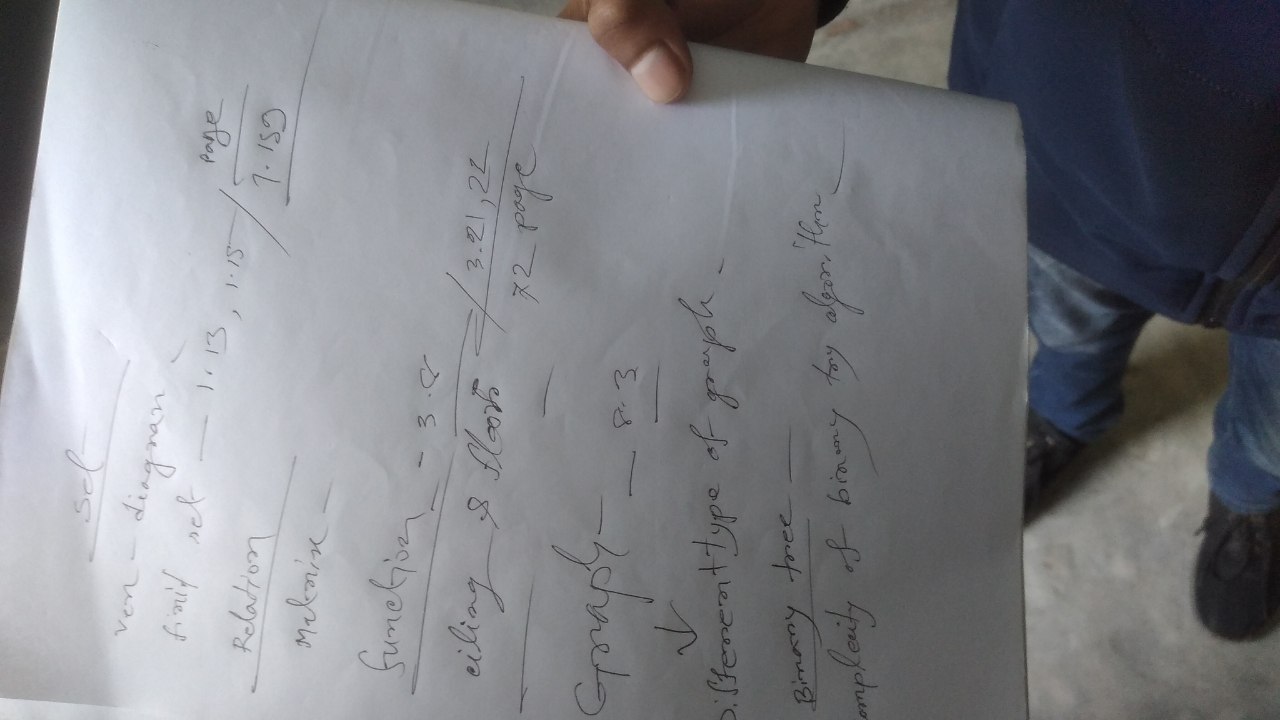 Set
ven - diagram
finit set — 1.13, 1.15 / page
1.159
Relation
Matrix —
function - 3.8
ciling & floor / 3.21, 22
72 page
Graph — 8.3
Different type of graph -
Binary tree —
omplexity of binary try algorithm